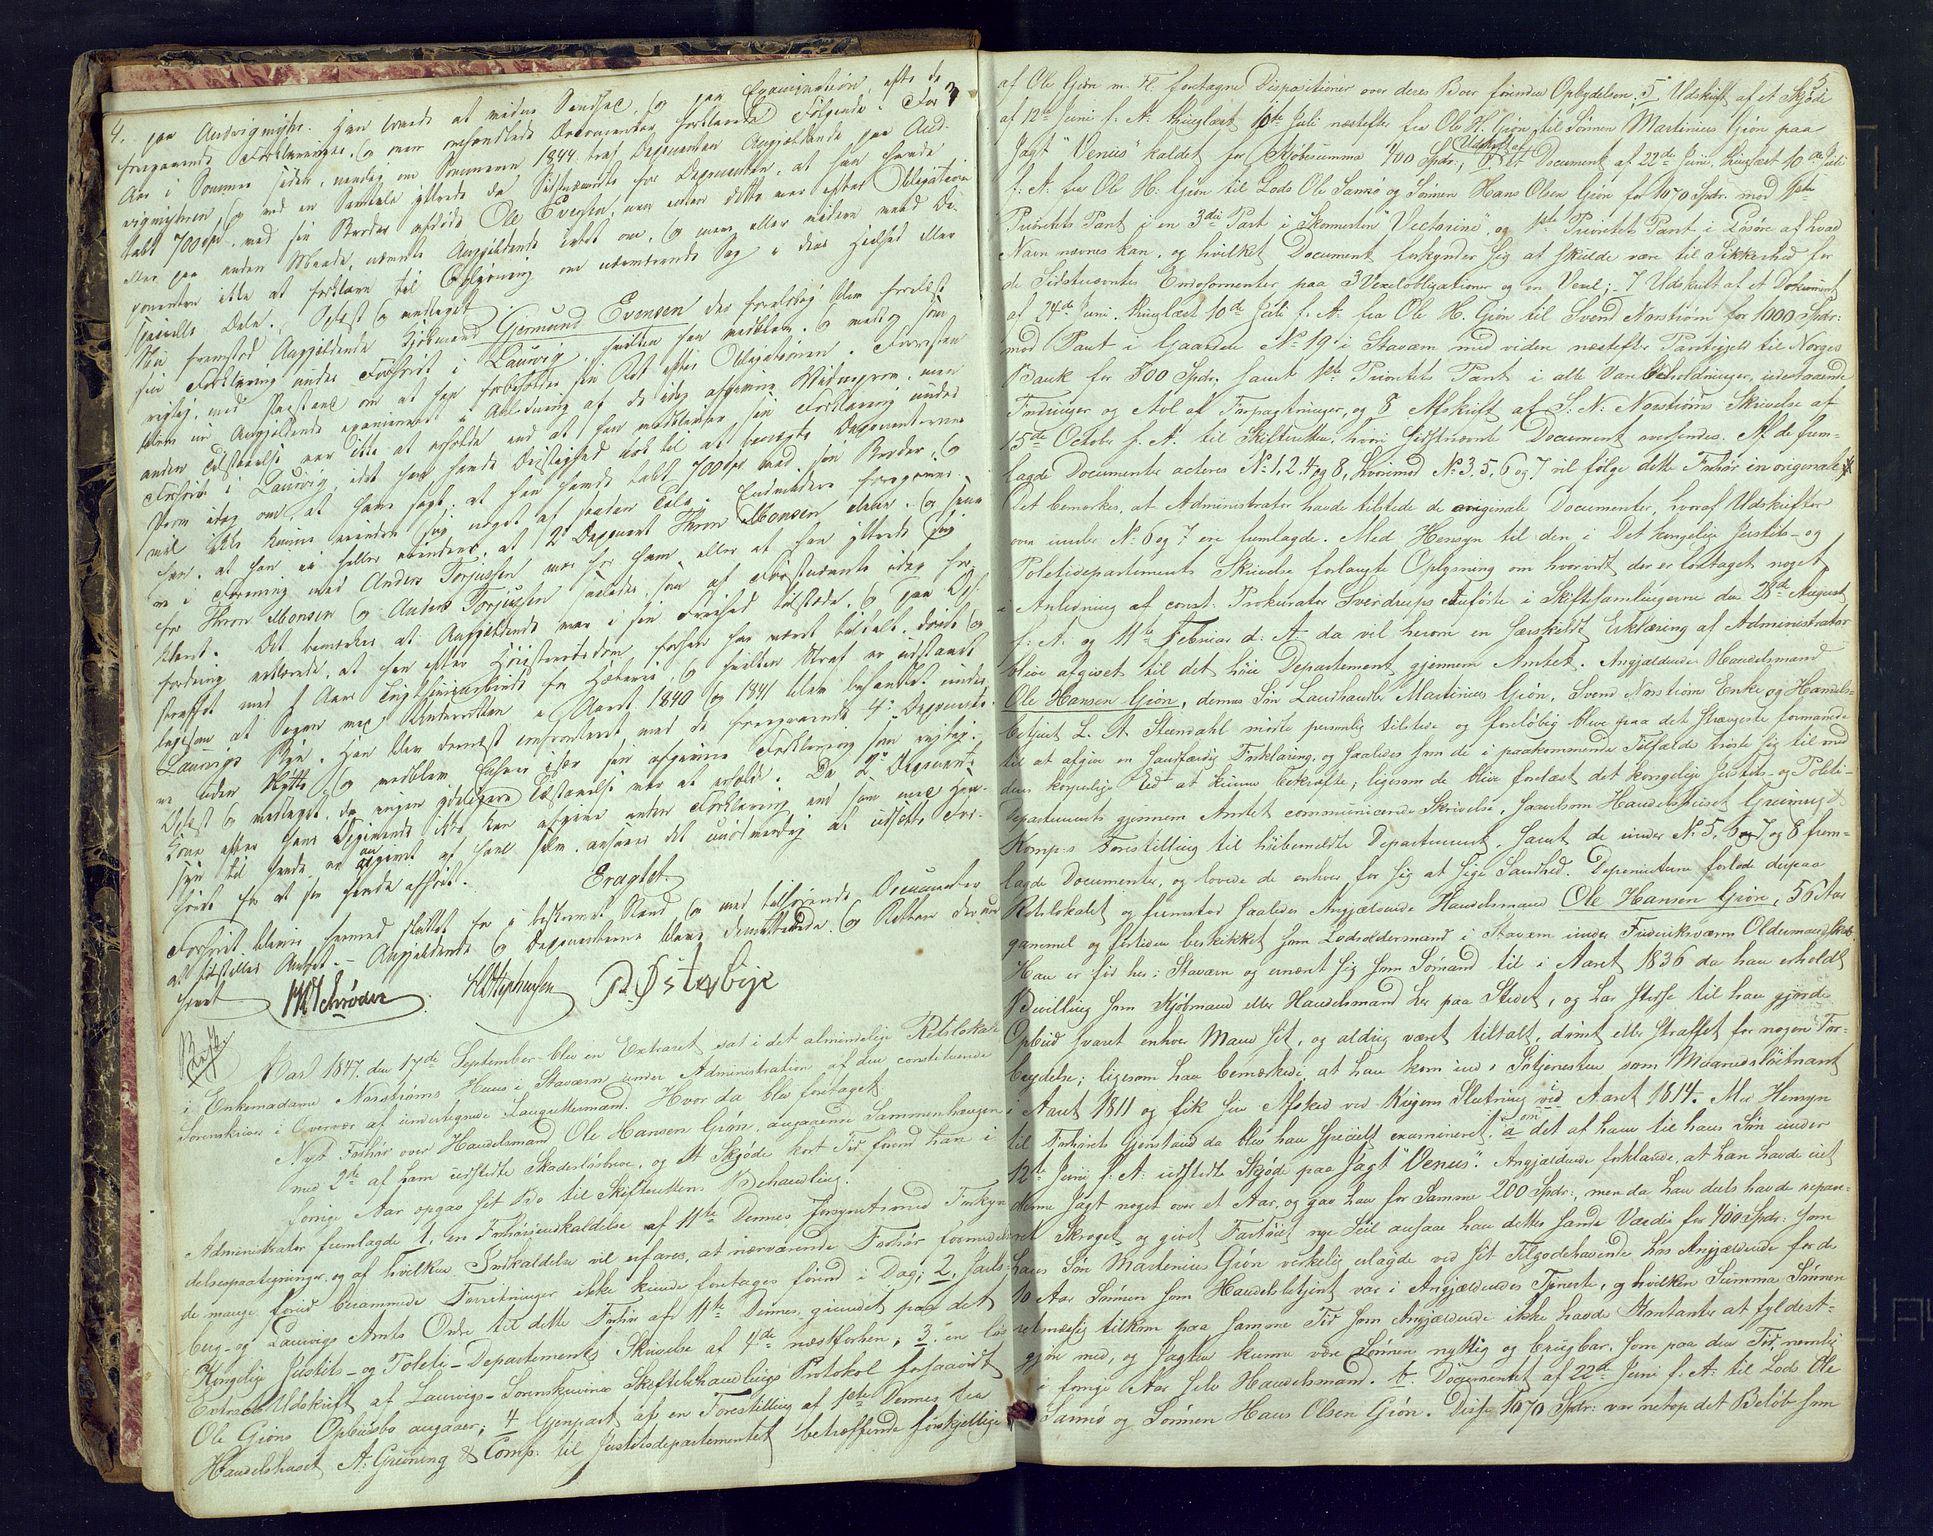 4. paa Andvigmyhr. Han lovede at vidne Sandhed, og paa Examination, efter de
foregaaende Forklaringer, og mere omhandlede Documenter forklarede Følgende: For 3
Aar i Sommer siden, nemlig om Sommeren 1844 traf Deponenten Angjældende paa And-
vigmyhren, og ved en Samtale yttrede da Sidstnævnte for Deponenten, at han havde
tabt 700 Spd. med sin Broder afdøde Ole Evensen, men enten dette var efter Obligation
eller paa anden Maade, nævnte Angjældende intet om, og mere eller videre vaed De-
ponenten ikke at forklare til Oplysning om nærværende Sag i dens Heelhed eller
specielle Dele. Oplæst og vedtaget.
Nu fremstod Angjældende Kjøbmand Gjermund Evensen der foreløbig blev forelæst
sin Forklaring under Forhøret i Laurvig, hvilken han vedblev, og vedtog som
rigtig, med Paastand om at han forbeholdes sin Ret efter Obligationen. Foresten
blev nu Angjældende examineret i Anledning af de idag afgivne Vidneprov, men
anden Tilstaaelse var ikke at erholde end at han vedkjender sin Forklaring under
Forhøret i Laurvig, idet han havde Dristighed nok til at benægte Deponenternes
Prov idag om, at have sagt, at han havde tabt 700 Spd. ved sin Broder, og
vil ikke kunne erindre sig noget af saadan Tale. Endvidere foregav
han, at han ei heller erindrer, at 2den Deponent Thron Monsen
var i Forening med Anders Torjussen var hos ham eller at han yttrede sig
for Thron Monsen og Anders Torjussen saaledes, som af Førstnævnte idag for-
klaret. Det bemærkes at Angjældende var i sin Frihed tilstæde, og paa Op-
fordring erklærede, at han efter Høiesteretsdom forhen har været tiltalt, dømt og
straffet med 1 Aars Tugthuusarbeide for Hæleri, og hvilken Straf er udstaaet
ligesom at Sagen ved Underretten i Aaret 1840 og 1841 blev behandlet under
Laurvigs Bye. Han blev dernæst confronteret med de foregaaende 4de Deponenter
uden Nytte, og vedblev Enhver især sin afgivne Forklaring som rigtig.
Oplæst og vedtaget, da ingen yderligere Tilstaaelse var at erholde. Da 2den Deponents
Kone efter hans Opgivende ikke kan afgive anden Forklaring end som med Hen-
syn til hende er angivet af ham selv, ansaaes det unødvendig at udsætte For-
høret for at faae hende afhørt.
Eragtet
Forhøret bliver hermed sluttet for i beskreven Stand og med tilhørende Documenter
at tilstilles Amtet. – Angjældende og Deponenterne bleve demitterede, og Retten derved
hævet
MSchrøder HOStephensen P. Østerbye
Aar 1847. den 17de September blev en Extraret sat i det almindelige Retslokale
i Enkemadame Norstrøms Huus i Staværn under Administration af den constituerede
Sorenskriver i Overvær af undertegnede Laugrettesmænd. Hvor da blev foretaget
Nyt Forhør over Handelsmand Ole Hansen Giøn, angaaende Sammenhængen
med 2de af ham udstedte Skadesløsbreve, og et Skjøde kort Tid førend han i
forrige Aar opgav sit Bo til Skifterettens Behandling.
Administrator fremlagde 1, en Forhørsindkaldelse af 11te Dennes forsynet med Forkyn-
delsespaategninger, og af hvilken Indkaldelse vil erfares, at nærværende Forhør formedelst
de mange forud berammede Forretninger ikke kunde foretages førend i Dag; 2, Jarls-
berg- og Laurvigs Amts Ordre til dette Forhør af 11te Dennes, grundet paa det
Kongelige Justits- og Politi-Departements Skrivelse af 4de næstforhen; 3. en løs
Extract Udskrift af Laurvigs Sorenskriveries Skiftebehandlings Protokol forsaavidt
Ole Giøns Opbudsbo angaaer; 4 Gjenpart af en Forestilling af 1ste Dennes fra
Handelshuset A. Grüning & Comp. til Justitsdepartementet betræffende forskjellige
5
af Ole Giøn m. Fl. foretagne Dispositioner over deres Boer førend Opbydelsen; 5 Udskrift af et Skjøde
af 12te Juni f. A. thinglæst 10de Juli næstefter fra Ole H. Giøn til Sønnen Martinius Giøn paa
Jagt "Venus" kaldet for Kjøbesumma 400 Spdr; 6 Udskrift af Et Document af 22de Juni, thinglæst 10de Juli
f. A. fra Ole H. Giøn til Lods Ole Sannø og Sønnen Hans Olsen Giøn for 1070 Spdr. mod 1ste
Prioritets Pant i en 3die Part i Skonnerten "Vectorine", og 1ste Prioritets Pant i Løsøre af hvad
Navn nævnes kan, og hvilket Document forkynder sig at skulde være til Sikkerhed for
de Sidstnævntes Endossementer paa 3 Vexelobligationer og en Vexel; – 7 Udskrift af et Dokument
af 24de Juni, thinglæst 10de Juli f. A. fra Ole H. Giøn til Svend Norstrøm for 1000 Spdr:
mod Pant i Gaarden No 19 i Stavæern med videre næstefter Pantegjæld til Norges
Bank for 500 Spdr, samt 1ste Prioritets Pant i alle Varebeholdninger, udestaaende
Fordringer og Avl af Forpagtninger, og 8 Afskrift af S. N. Norstrøms Skrivelse af
15de Octobr f. A. til Skifteretten, hvori Sidstnævnte Document oversendes. Af de frem-
lagde Documenter acteres No 1, 2, 4 og 8, hvorimod No 3, 5, 6 og 7 vil følge dette Forhør in originale.
Det bemærkes, at Administrator havde tilstede de originale Documenter, hvoraf Udskrifter
som under No. 6 og 7 ere fremlagde. Med Hensyn til den i Det kongelige Justits- og
Politidepartements Skrivelse forlangte Oplysning om hvorvidt der er foretaget noget
i Anledning af const. Prokurator Sverdrups Anførte i Skiftesamlingerne den 28de August
f. A. og 11te Februar d. A. da vil herom en særskildt Erklæring af Administrator
blive afgivet til det høie Departement gjennem Amtet. Angjældende Handelsmand
Ole Hansen Giøn, dennes Søn Landhandler Martinius Giøn, Svend Norstrøms Enke og Handels-
betjent L. A. Steendahl mødte personlig tilstede og foreløbig bleve paa det strængeste formanede
til at afgive en sandfærdig Forklaring, og saaledes som de i paakommende Tilfælde trøste sig til med
deres korporlige Eed at kunne bekræfte; ligesom de bleve forelæst det kongelige Justits- og Politi-
Departements gjennem Amtet communicerede Skrivelse, saavelsom Handelshuset Grüning &
Komp.s Forestilling til høibemeldte Departement, samt de under No 5, 6 og 7 og 8 frem-
lagde Documenter, og lovede de enhver for sig at sige Sandhed. Deponenterne forlode derpaa
Retslokalet og fremstod saaledes Angjældende Handelsmand Ole Hansen Giøn, 56 Aar
gammel og fortiden beskikket som Lodsoldermand i Stavæern under Frederiksværns Oldermandskab.
Han er født her i Stavæern og ernæret sig som Sømand til i Aaret 1836 da han erholdt
Bevilling som Kjøbmand eller Handelsmand her paa Stedet, og har stedse til han gjorde
Opbud svaret enhver Mand sit, og aldrig været tiltalt, dømt eller straffet for nogen For-
brydelse; ligesom han bemærkede, at han kom ind i Søtjenesten som Maanedsløitnant
i Aaret 1811 og fik sin Afsked ved Krigens Slutning ved Aaret 1814. Med Hensyn
til Forhørets Gjenstand da blev han specielt examineret: a om det af ham til hans Søn under
12te Juni f. A. udstedte Skjøde paa Jagt "Venus". Angjældende forklarede, at han havde eiet
denne Jagt noget over et Aar, og gav han for Samme 200 Spdr:, men da han deels havde repare-
ret Skroget og givet Fartøiet nye Seil ansaae han dettes sande Værdie for 400 Spdr: som
hans Søn Martinius Giøn virkelig erlagde ved sit Tilgodehavende hos Angjældende for de
10 Aar Sønnen som Handelsbetjent var i Angjældendes Tjeneste, og hvilken Summa Sønnen
retmæssig tilkom paa samme Tid som Angjældende ikke havde Contanter at fyldest-
gjøre med, og Jagten kunne være Sønnen nyttig og brugbar, som paa den Tid, nemlig
i forrige Aar selv Handelsmand. b. Documentet af 22de Juni f. A: til Lods Ole
Sannø og Sønnen Hans Olsen Giøn. Disse 1070 Spdr: var netop det Beløb som